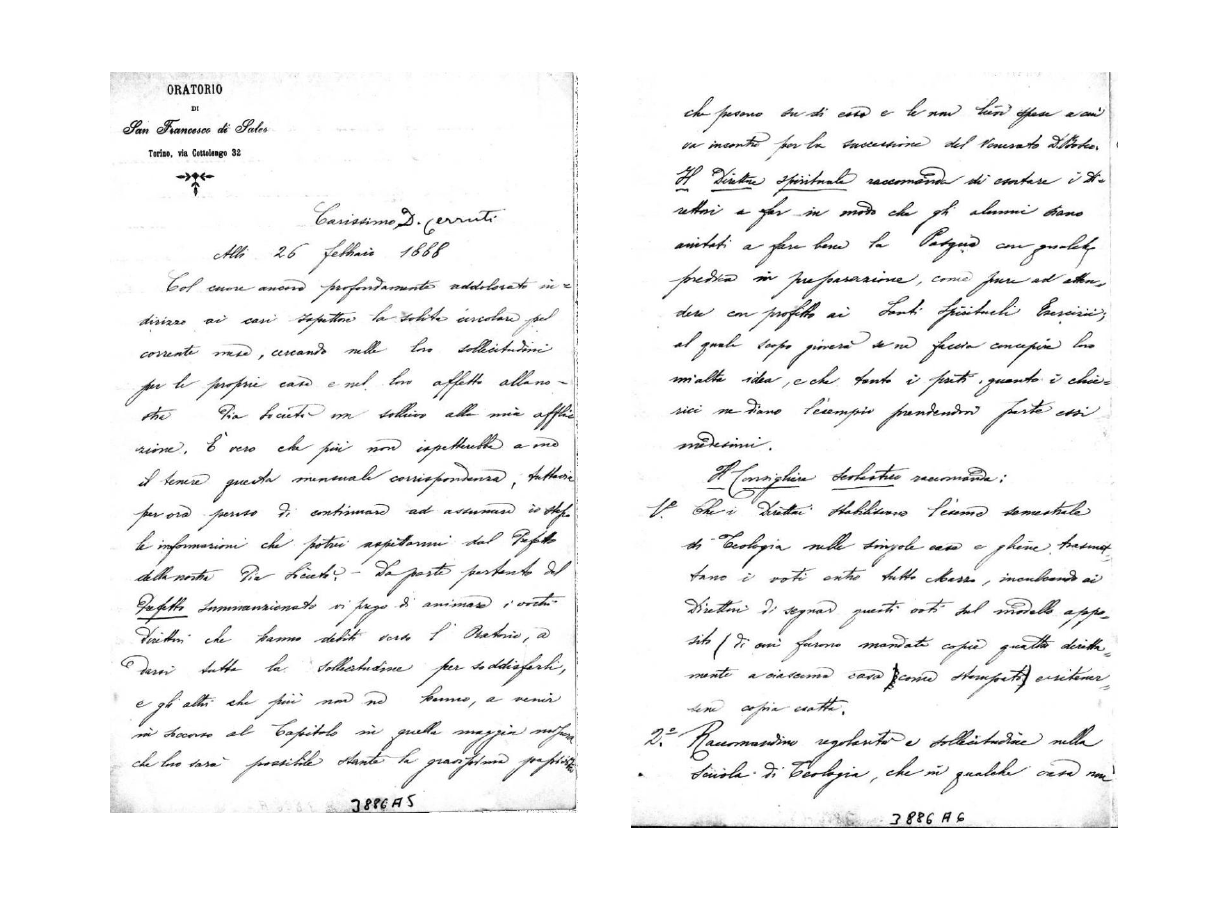 ORATORIO
DI
San Francesco di Sales
Torino, via Cottolengo 32
Carissimo D. Cerruti
Alli 26 febbraio 1888
Col cuore ancora profondamente addolorato in=
dirizzo ai cari Ispettori la solita circolare pel
corrente mese, cercando nelle loro sollecitudini
per le proprie case e nel loro affetto alla no-
stra Pia Società un sollievo alla mia afflit
zione. È vero che più non ispetterebbe a me
il tenere questa mensuale corrispondenza, tuttavia
per ora penso di continuare ad assumere io stesso
le informazioni che potrei aspettarmi dal Prefetto
della nostra Pia Società. - Da parte pertanto del
Prefetto summenzionato vi prego di animare i vostri
Direttori che hanno debiti verso l'Oratorio, a
darsi tutta la sollecitudine per soddisferli,
e gli altri che più non ne hanno, a venir
in soccorso al Capitolo in quella maggior
che loro sarà possibile stante le gravissime passività
3886 A5
che pesano su di esso e le non lievi spese a cui
va incontro per la successione del Venerato D. Bosco.
Il Direttore Spirituale raccomanda di esortare i Di-
rettori a far in modo che gli alunni siano
aiutati a fare bene la Pasqua con qualche
predica in preparazione, come pure ad atten-
dere con profitto ai Santi Spirituali Esercizii;
al quale scopo gioverà se ne faccia concepire loro
un'alta idea, e che tanto i preti, quanto i chie=
rici ne diano l'esempio prendendovi parte essi
medesimi.
Il Consigliere Scolastico raccomanda:
1º. Che i Direttori stabiliscano l'esame semestrale
di Teologia nelle singole case e gliene trasmet-
tano i voti entro tutto Marzo, inculcando ai
Direttori di segnar questi voti sul modello appo-
sito (di cui furono mandate copie quattro diretta-
mente a ciascuna casa come stampati) e ritener-
sene copia esatta.
2º. Raccomandino regolarità e sollecitudine nella
scuola di Teologia, che in qualche casa non
3886 A6